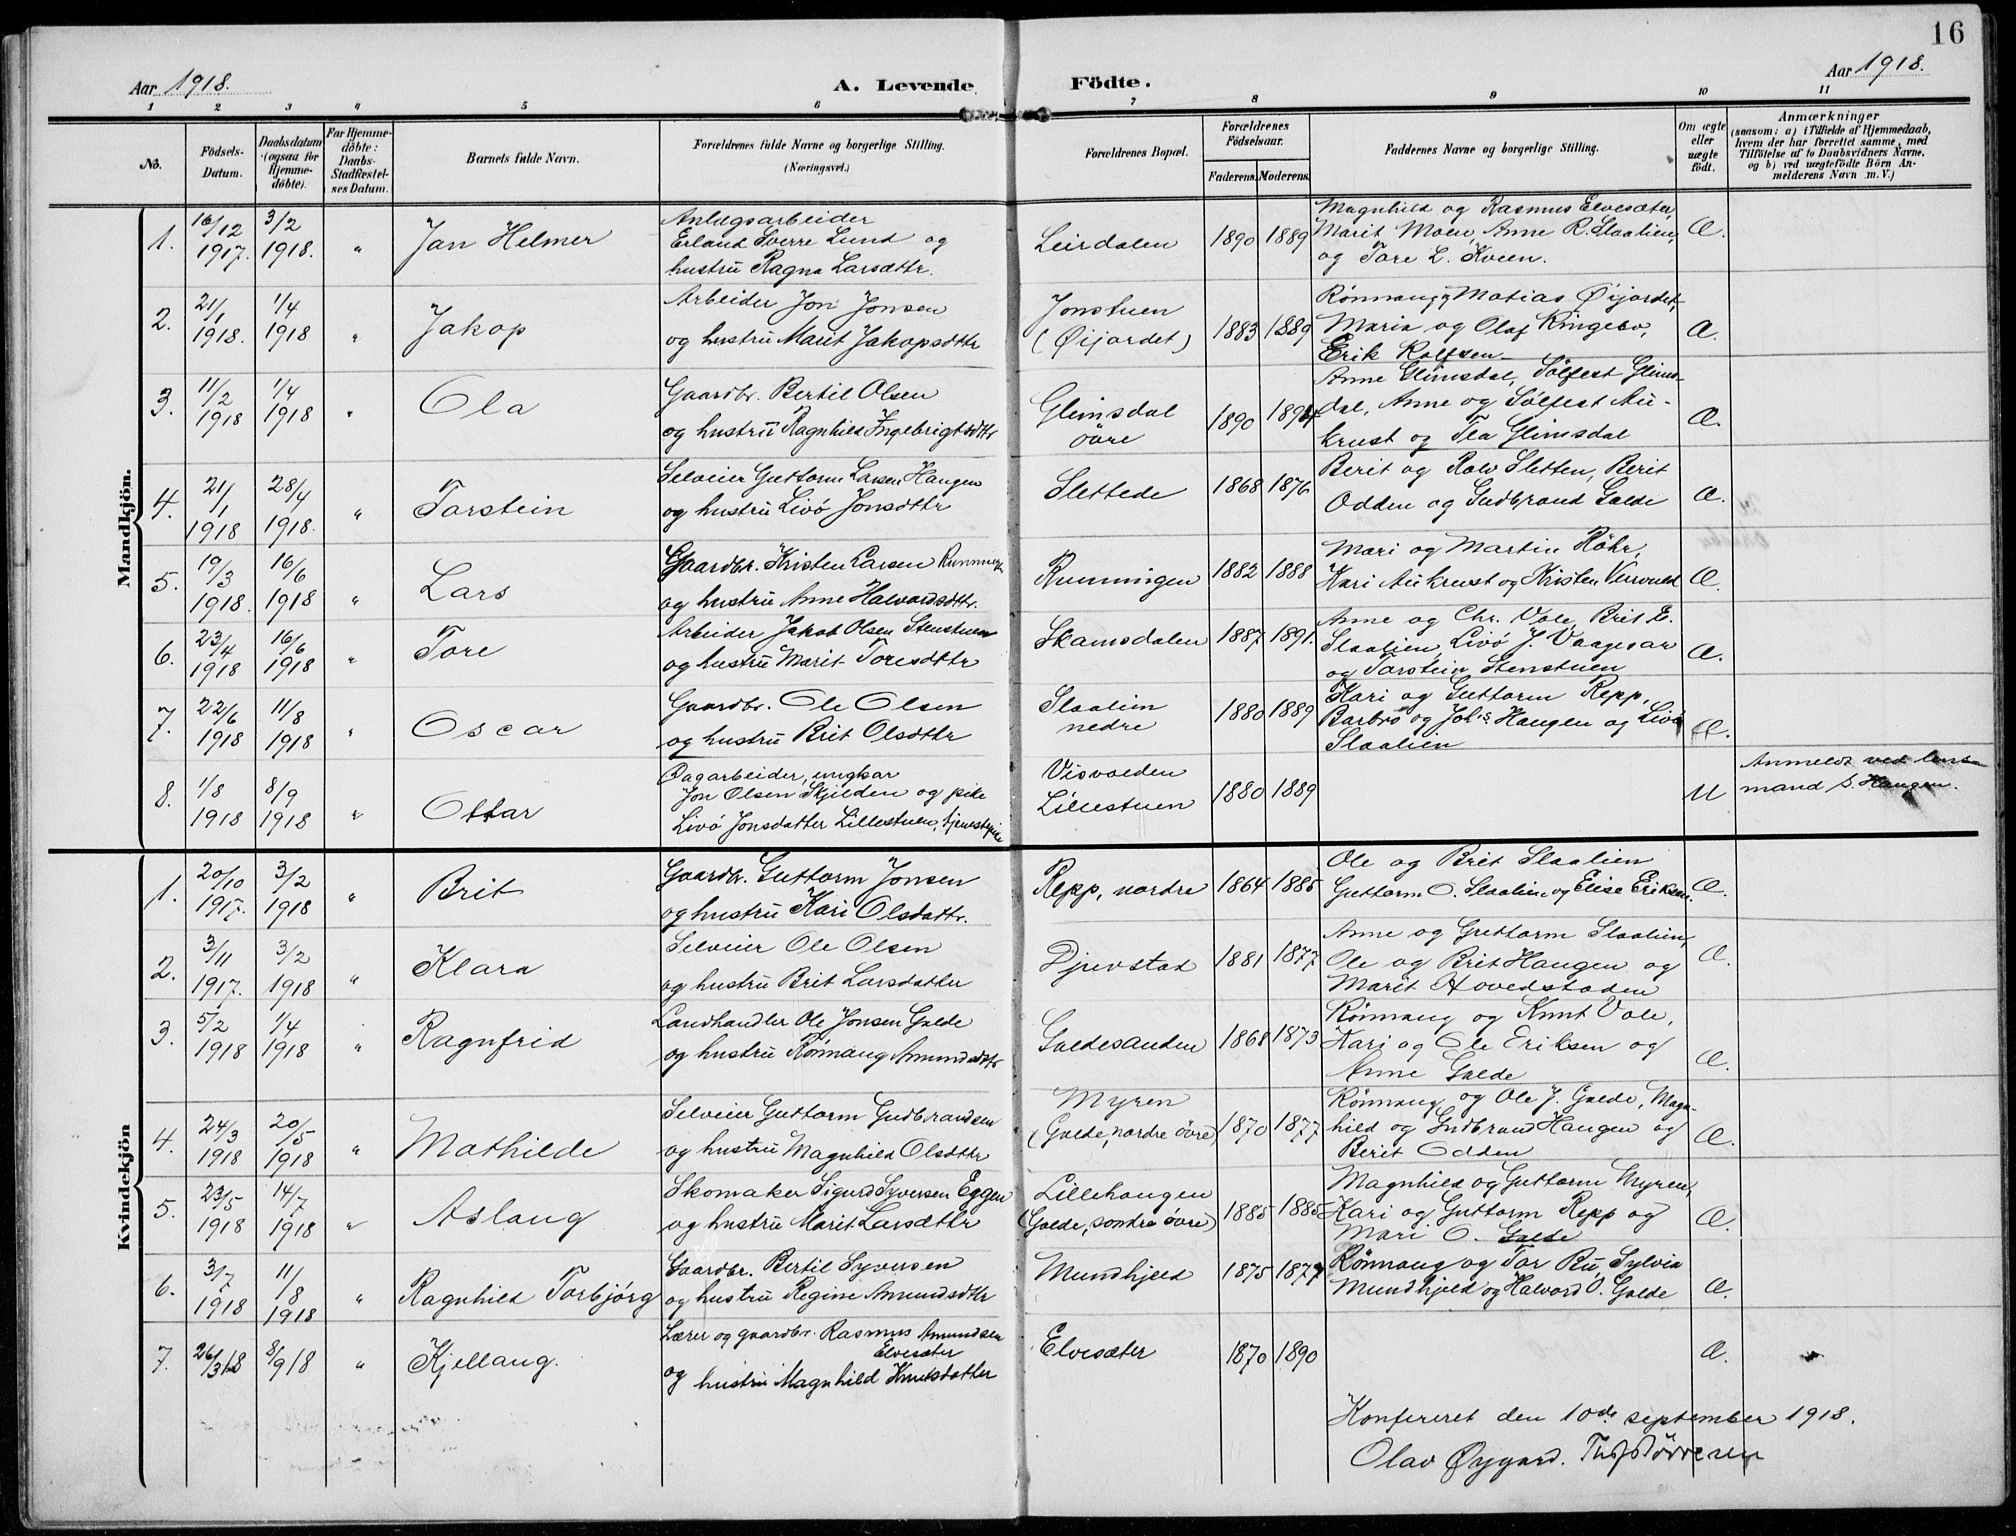 16
Aar 1918.
A. Levende Födte.
Aar 1918.
1 2 3 4 5 6 7 8 9 10 11
No.
Födsels-Datum.
Daabsdatum (ogsaa for Hjemmedöbte).
For Hjemmedöbte: Daabs-Stadfæstelses Datum.
Barnets fulde Navn.
Forældrenes fulde Navne og borgerlige Stilling.
(Næringsvei.)
Forældrenes Bopæl.
Forældrenes Födselsaar.
Faderens. Moderens.
Faddernes Navne og borgerlige Stilling.
Om ægte eller uægte födt.
Anmærkninger
(saasom: a) i Tilfælde af Hjemmedaab, hvem der har forrettet samme, med Tilföielse af to Daabsvidners Navne, og b) ved uægtefödte Börn Anmelderens Navn m. V.)
Mandkjön.
1. 16/12 1917. 3/2 1918. " Jan Helmer
Anlægsarbeider
Erland Sverre Lund og
hustru Ragna Larsdttr.
Leirdalen 1890 1889
Magnhild og Rasmus Elvesæter,
Marit Moen, Anne R. Slaalien,
og Tore L. Kveen.
Æ.
2. 21/1 1918. 1/4 1918 " Jakop
Arbeider Jon Jonsen
og hustru Marit Jakopsdttr
Jonstuen
(Øijordet) 1883 1889
Rönnaug Matias Øijordet,
Maria og Olaf Ringebo,
Erik Rolfsen
Æ.
3. 11/2 1918 1/4 1918 " Ola
Gaardbr. Bertil Olsen
og hustru Ragnhild Ingebrigtsdttr
Glimsdal
övre 1890 1894
Anne Glimsdal, Sölfest Glims-
dal, Anne og Sölfest Au-
krust og Tea Glimsdal
Æ.
4. 21/1 1918 28/4 1918. " Torstein
Selveier Guttorm Larsen Haugen
og hustru Livö Jonsdttr
Slettede 1868 1876
Berit og Rolv Sletten, Berit
Odden og Gudbrand Galde
Æ.
5. 19/3 1918. 16/6 1918 " Lars
Gaardbr. Kristen Larsen
og hustru Anne Halvordsdttr.
Runningen 1882 1888
Mari og Martin Röhr,
Kari Aukrust og Kristen Vervold
Æ.
6. 23/4 1918 16/6 1918 " Tore
Arbeider Jakob Olsen Stenstuen
og hustru Marit Toresdttr
Skamsdalen 1887 1891.
Anne og Chr. Vole, Brit E.
Slaalien, Livö J. Vaagesar
og Torstein Stenstuen
Æ.
7. 22/6 1918 11/8 1918 " Oscar
Gaardbr. Ole Olsen
og hustru Brit Olsdttr
Slaalien
nedre 1880 1889
Kari og Guttorm Repp,
Barbro og Johs Haugen og Livö
Slaalien
Æ.
8. 1/8 1918 8/9 1918 " Ottar
Dagarbeider, ungkar
Jon Olsen Skjelden og pike
Livö Jonsdatter Lillestuen,
Visvolden
Lillestuen 1880 1889
U
Anmeldt ved lens-
mand S. Haugen.
Kvindekjön
1. 20/10 1917. 3/2 1918 " Brit
Gaardbr. Guttorm Jonsen
og hustru Kari Olsdattr.
Repp, nordre 1864 1885
Ole og Brit Slaalien
Guttorm O. Slaalien og Elise Eriksen.
Æ.
2. 3/11 1917. 3/2 1918 " Klara
Selveier Ole Olsen
og hustru Brit Larsdatter
Djuvstad 1881 1877
Anne og Guttorm Slaalien,
Ole og Brit Haugen og
Marit Hovedstaden
Æ.
3. 5/2 1918 1/4 1918 " Ragnfrid
Landhandler Ole Jonsen Galde
og hustru Rönnaug Amundsdttr
Galdesanden 1868 1873
Rönnaug og Knut Vole,
Kari og Ole Eriksen og
Anne Galde
Æ.
4. 24/3 1918 20/5 1918 " Mathilde
Selveier Guttorm Gudbrandsen
og hustru Magnhild Olsdttr
Myren
(Galde, nordre övre) 1870 1877
Rönnaug og Ole J. Galde, Magn-
hild og Gudbrand Haugen og
Berit Odden
Æ.
5. 23/5 1918 14/7 1918 " Aslaug
Skomaker Sigurd Syversen Eggen
og hustru Marit Larsdttr
Lillehaugen
(Galde, söndre övre) 1885 1885
Magnhild og Guttorm Myren,
Kari og Guttorm Repp og
Mari O. Galde
Æ.
6. 3/7 1918 11/8 1918 " Ragnhild Torbjörg
Gaardbr. Bertil Syversen
og hustru Regine Amundsdttr
Mundhjeld 1875 1877
Rönnaug og Tor Bu, Sylvia
Mundhjeld og Halvord O. Galde
Æ.
7. 26/3 18 8/9 18 " Kjellaug.
Lærer og gaardbr. Rasmus Amundsen
Elvesæter
og hustru Magnhild Knutsdatter
Elvesæter 1870 1890
Æ.
Konfereret den 10de september 1918.
Olav Øygard.